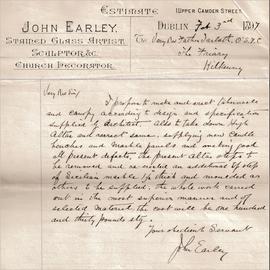 Estimate
1 Upper Camden Street,
John Earley,
Stained Glass Artist,
Sculptor &c
Church Decorator.
Dublin Feb 3rd 1897
To Very Rev Father O.S.F.C
The Friary
Kilkenny
Very Rev Sir,
I propose to make and erect Tabernacle
and Canopy according to design and specification
supplied by Architect. Also to take down High
Altar and reerect same, supplying new Candle
benches and Marble panels and making good
all present defects, the present Altar steps to
be removed and re-instate an additional step
of Sicilian marble thick and moulded as
others to be supplied. the whole work carried
out in the most superior manner and of
selected material, the cost will be one hundred
and thirty pounds stg.
Your obedient Servant
John Earley